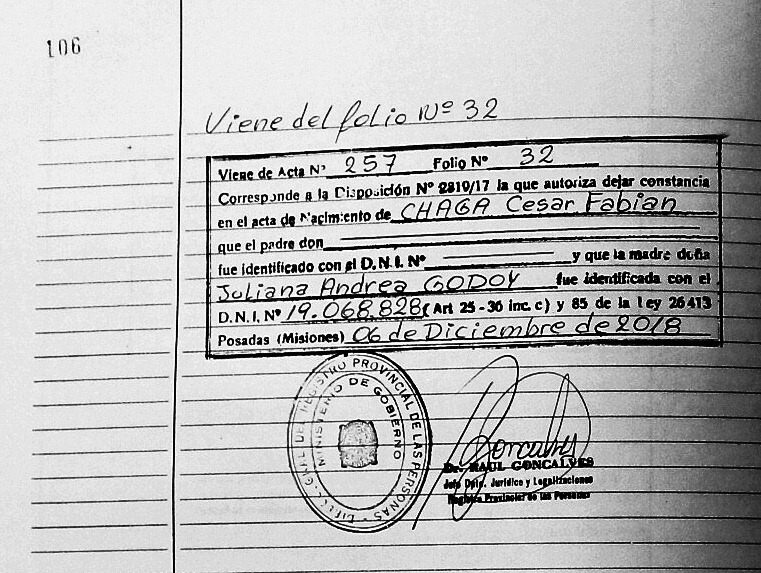 106
Viene del folio Nº 32
Viene de Acta Nº 257 Folio Nº 32
Corresponde a la Disposición Nº 2819/17 la que autoriza dejar constancia
en el acta de Nacimiento de CHAGA Cesar Fabian
que el padre don
fue identificado con el D.N.I. Nº y que la madre doña
Juliana Andrea GODOY fue identificada con el
D.N.I. Nº 19.068.828 (Art 25-36 inc. c) y 85 de la ley 26413
Posadas (Misiones) 06 de Diciembre de 2018
GRAL DEL REGISTRO PROVINCIAL DE LAS PERSONAS
MINISTERIO DE GOBIERNO
Goncalves
Dr. RAUL GONCALVES
Jefe Dpto. Jurídico y Legalizaciones
Registro Provincial de las Personas